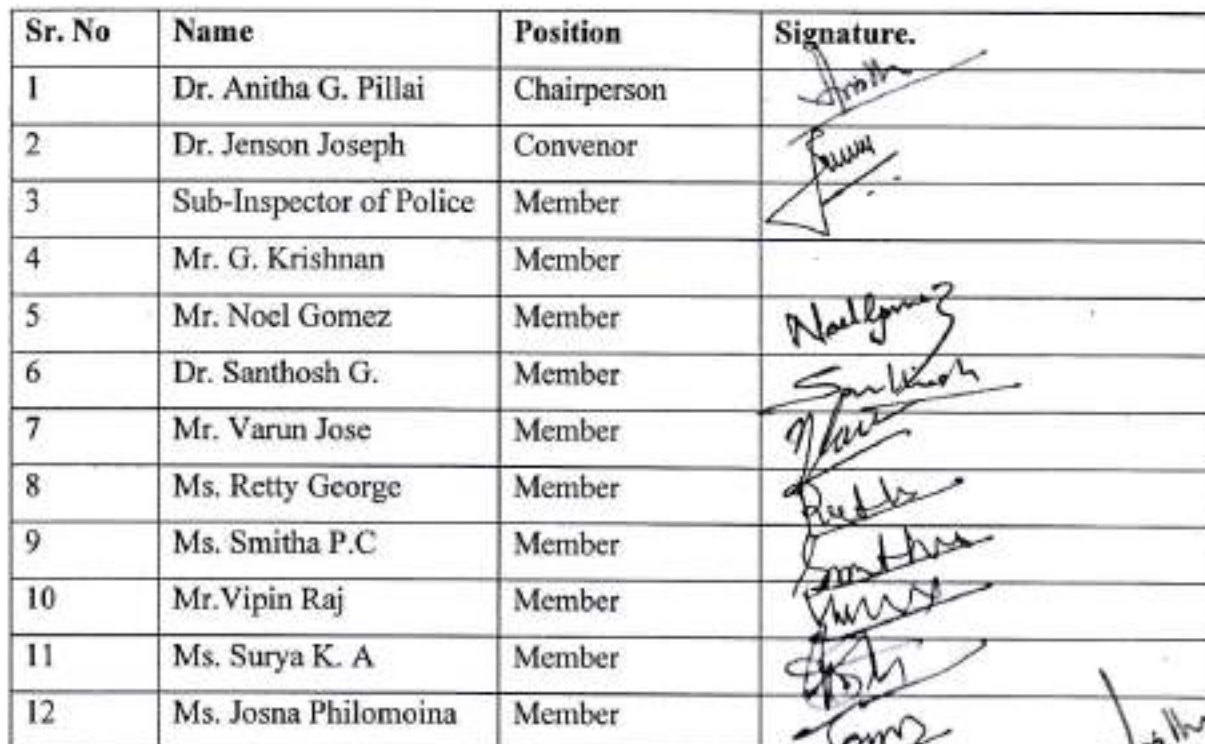 Sr. No Name Position Signature.
1 Dr. Anitha G. Pillai Chairperson
2 Dr. Jenson Joseph Convenor
3 Sub-Inspector of Police Member
4 Mr. G. Krishnan Member
5 Mr. Noel Gomez Member Noel Gomez
6 Dr. Santhosh G. Member Santhosh
7 Mr. Varun Jose Member
8 Ms. Retty George Member
9 Ms. Smitha P.C Member Smitha
10 Mr.Vipin Raj Member
11 Ms. Surya K. A Member
12 Ms. Josna Philomoina Member